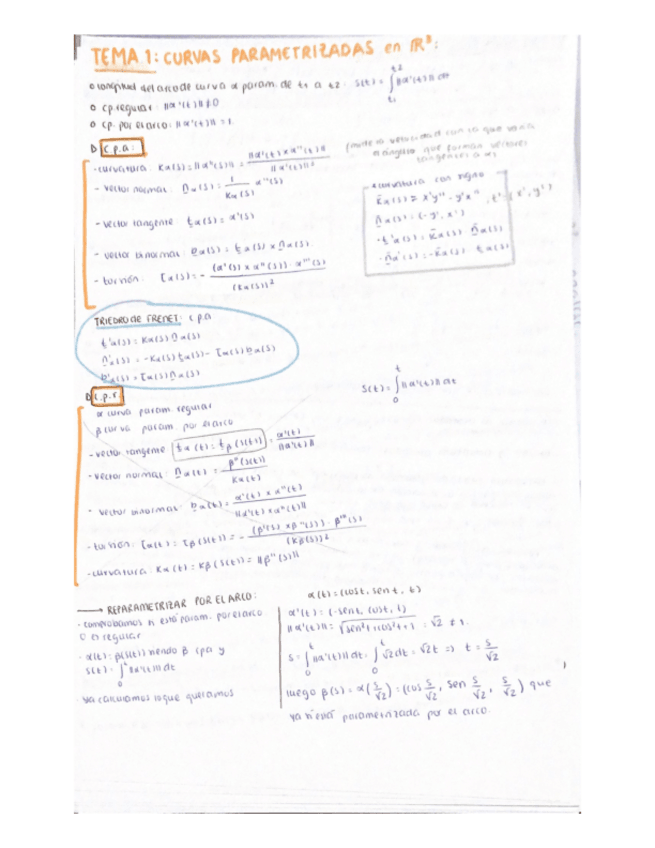 TEMA 1: CURVAS PARAMETRIZADAS en ℝ³:
o longitud del arco de curva α param. de t₁ a t₂: S(t) = ∫_{t₁}^{t₂} ||α'(t)|| dt
o cp. regular: ||α'(t)|| ≠ 0
o cp. por el arco: ||α'(t)|| = 1.
c.p.a:
- curvatura: Kα(s) = ||α''(s)|| = ||α'(t) x α''(t)|| / ||α'(t)||³
(mide la velocidad con la que varía el ángulo que forman vectores tangentes a α)
- vector normal: nα(s) = 1/Kα(s) α''(s)
- vector tangente: tα(s) = α'(s)
- vector binormal: bα(s) = tα(s) x nα(s).
- torsión: τα(s) = - (α'(s) x α''(s)) · α'''(s) / (kα(s))²
curvatura con signo
K̄α(s) = x'y'' - y'x'', t = (x', y')
n̄α(s) = (-y', x')
· t'α(s) = K̄α(s) n̄α(s)
· n̄α'(s) = -K̄α(s) tα(s)
TRIEDRO de FRENET: c.p.a
t'α(s) = Kα(s) nα(s)
n'α(s) = -Kα(s) tα(s) - τα(s) bα(s)
b'α(s) = τα(s) nα(s)
c.p.r
S(t) = ∫₀ᵗ ||α'(t)|| dt
α curva param regular
β curva param. por el arco
- vector tangente tα(t) = tβ(s(t)) = α'(t) / ||α'(t)||
- vector normal: nα(t) = β''(s(t)) / Kα(t)
- vector binormal: bα(t) = α'(t) x α''(t) / ||α'(t) x α''(t)||
- torsión: τα(t) = τβ(s(t)) = - (β'(s) x β''(s)) · β'''(s) / (Kβ(s))²
- curvatura: Kα(t) = Kβ(s(t)) = ||β''(s)||
→ REPARAMETRIZAR POR EL ARCO:
- comprobamos si está param. por el arco
o es regular
- α(t) = β(s(t)) siendo β cpa y
s(t) = ∫₀ᵗ ||α'(t)|| dt
- ya calculamos lo que queramos
α(t) = (cost, sent, t)
α'(t) = (-sent, cost, 1)
||α'(t)|| = √(sen²t + cos²t + 1) = √2 ≠ 1.
S = ∫₀ᵗ ||α'(t)|| dt = ∫₀ᵗ √2 dt = √2t ⇒ t = s/√2
luego β(s) = α(s/√2) = (cos s/√2, sen s/√2, s/√2) que
ya si está parametrizada por el arco.